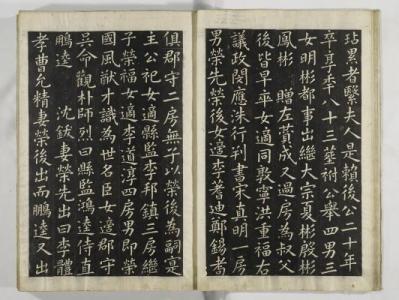 玷累者繄夫人是賴後公二十年
卒享年八十三葬祔公舉四男三
女明彬都事出繼大宗夏彬殷彬
鳳彬 贈左贊成又過房為叔父
後皆早卒女適同敦寧洪重福右
議政閔應洙行判書宋真明一房
男榮先榮後女適李著迪鄭錫耇
俱郡守二房無子以榮後為嗣寔
主公祀女適縣監李邦鎮三房繼
子榮福女適李道淳四房男即榮
國風猷才識為世名臣女適郡守
吳命觀朴師烈曰縣監鴻逵侍直
鵬逵 沈鈸妻榮先出曰李體
孝曹允精妻榮後出而鵬逵又出